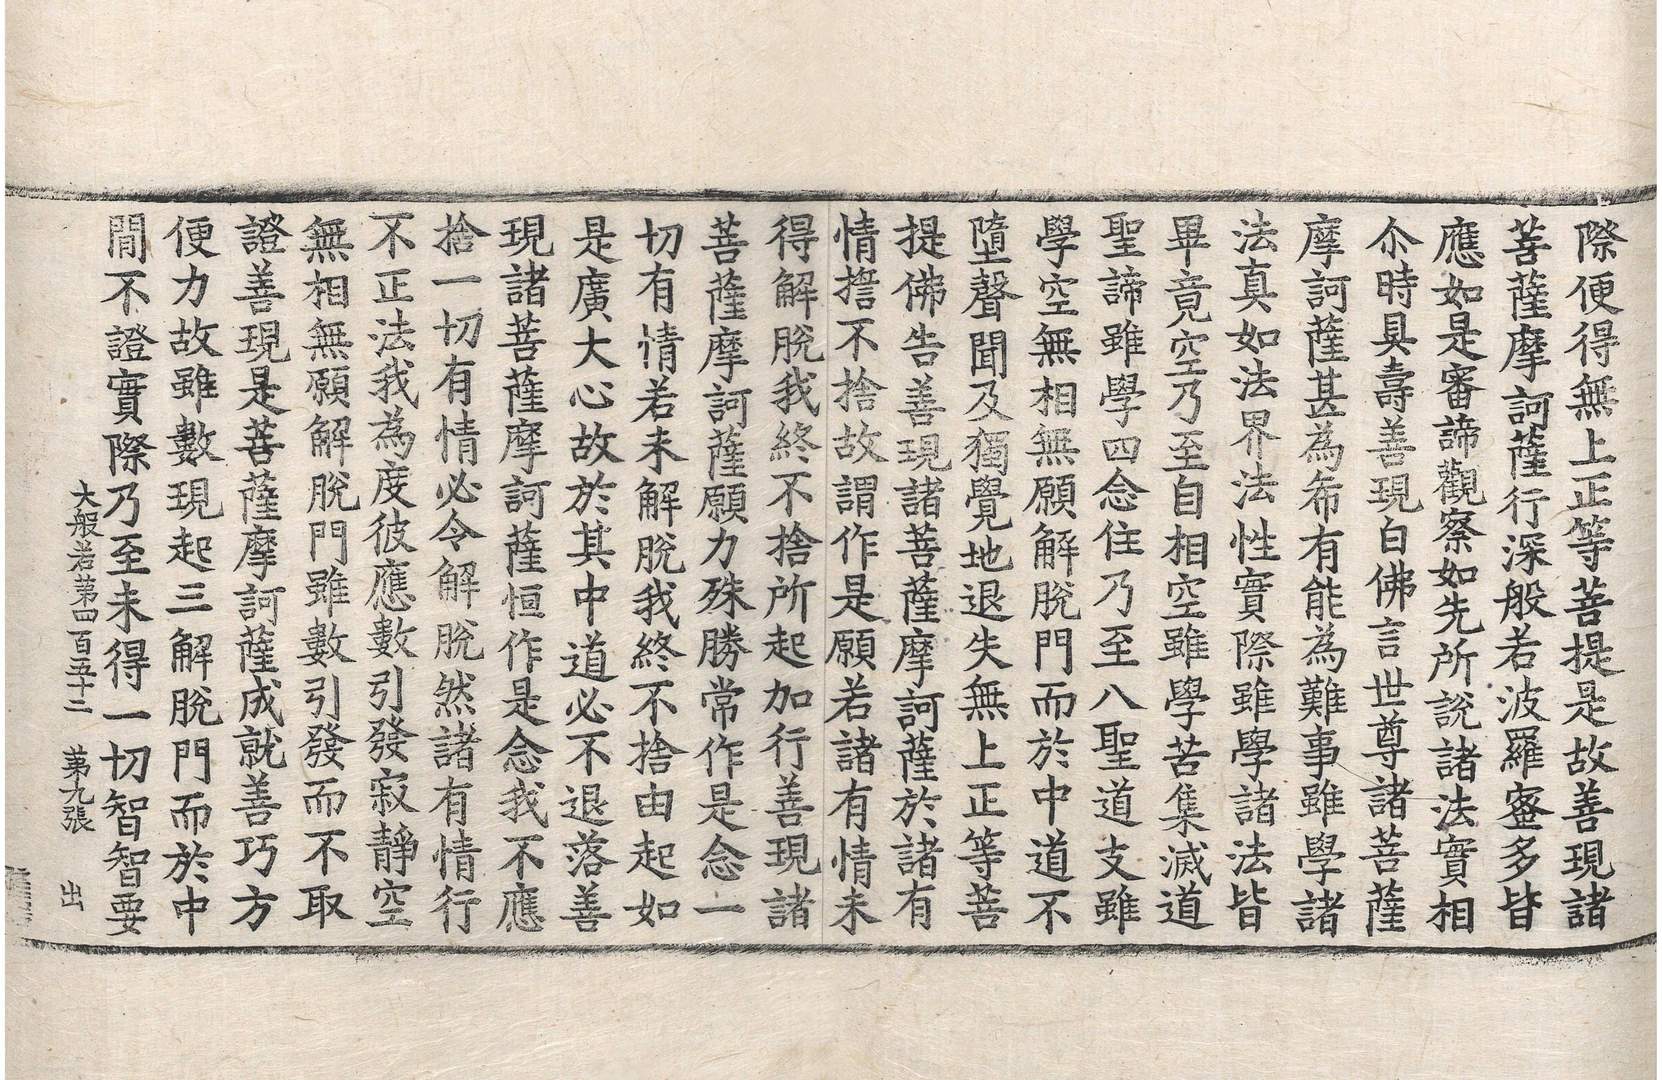 際便得無上正等菩提是故善現諸
菩薩摩訶薩行深般若波羅蜜多皆
應如是審諦觀察如先所說諸法實相
尒時具壽善現白佛言世尊諸菩薩
摩訶薩甚為希有能為難事雖學諸
法真如法界法性實際雖學諸法皆
畢竟空乃至自相空雖學苦集滅道
聖諦雖學四念住乃至八聖道支雖
學空無相無願解脫門而於中道不
墮聲聞及獨覺地退失無上正等菩
提佛告善現諸菩薩摩訶薩於諸有
情誓不捨故謂作是願若諸有情未
得解脫我終不捨所起加行善現諸
菩薩摩訶薩願力殊勝常作是念一
切有情若未解脫我終不捨由起如
是廣大心故於其中道必不退落善
現諸菩薩摩訶薩恒作是念我不應
捨一切有情必令解脫然諸有情行
不正法我為度彼應數引發寂靜空
無相無願解脫門雖數引發而不取
證善現是菩薩摩訶薩成就善巧方
便力故雖數現起三解脫門而於中
間不證實際乃至未得一切智智要
大般若第四百五十二 第九張 出